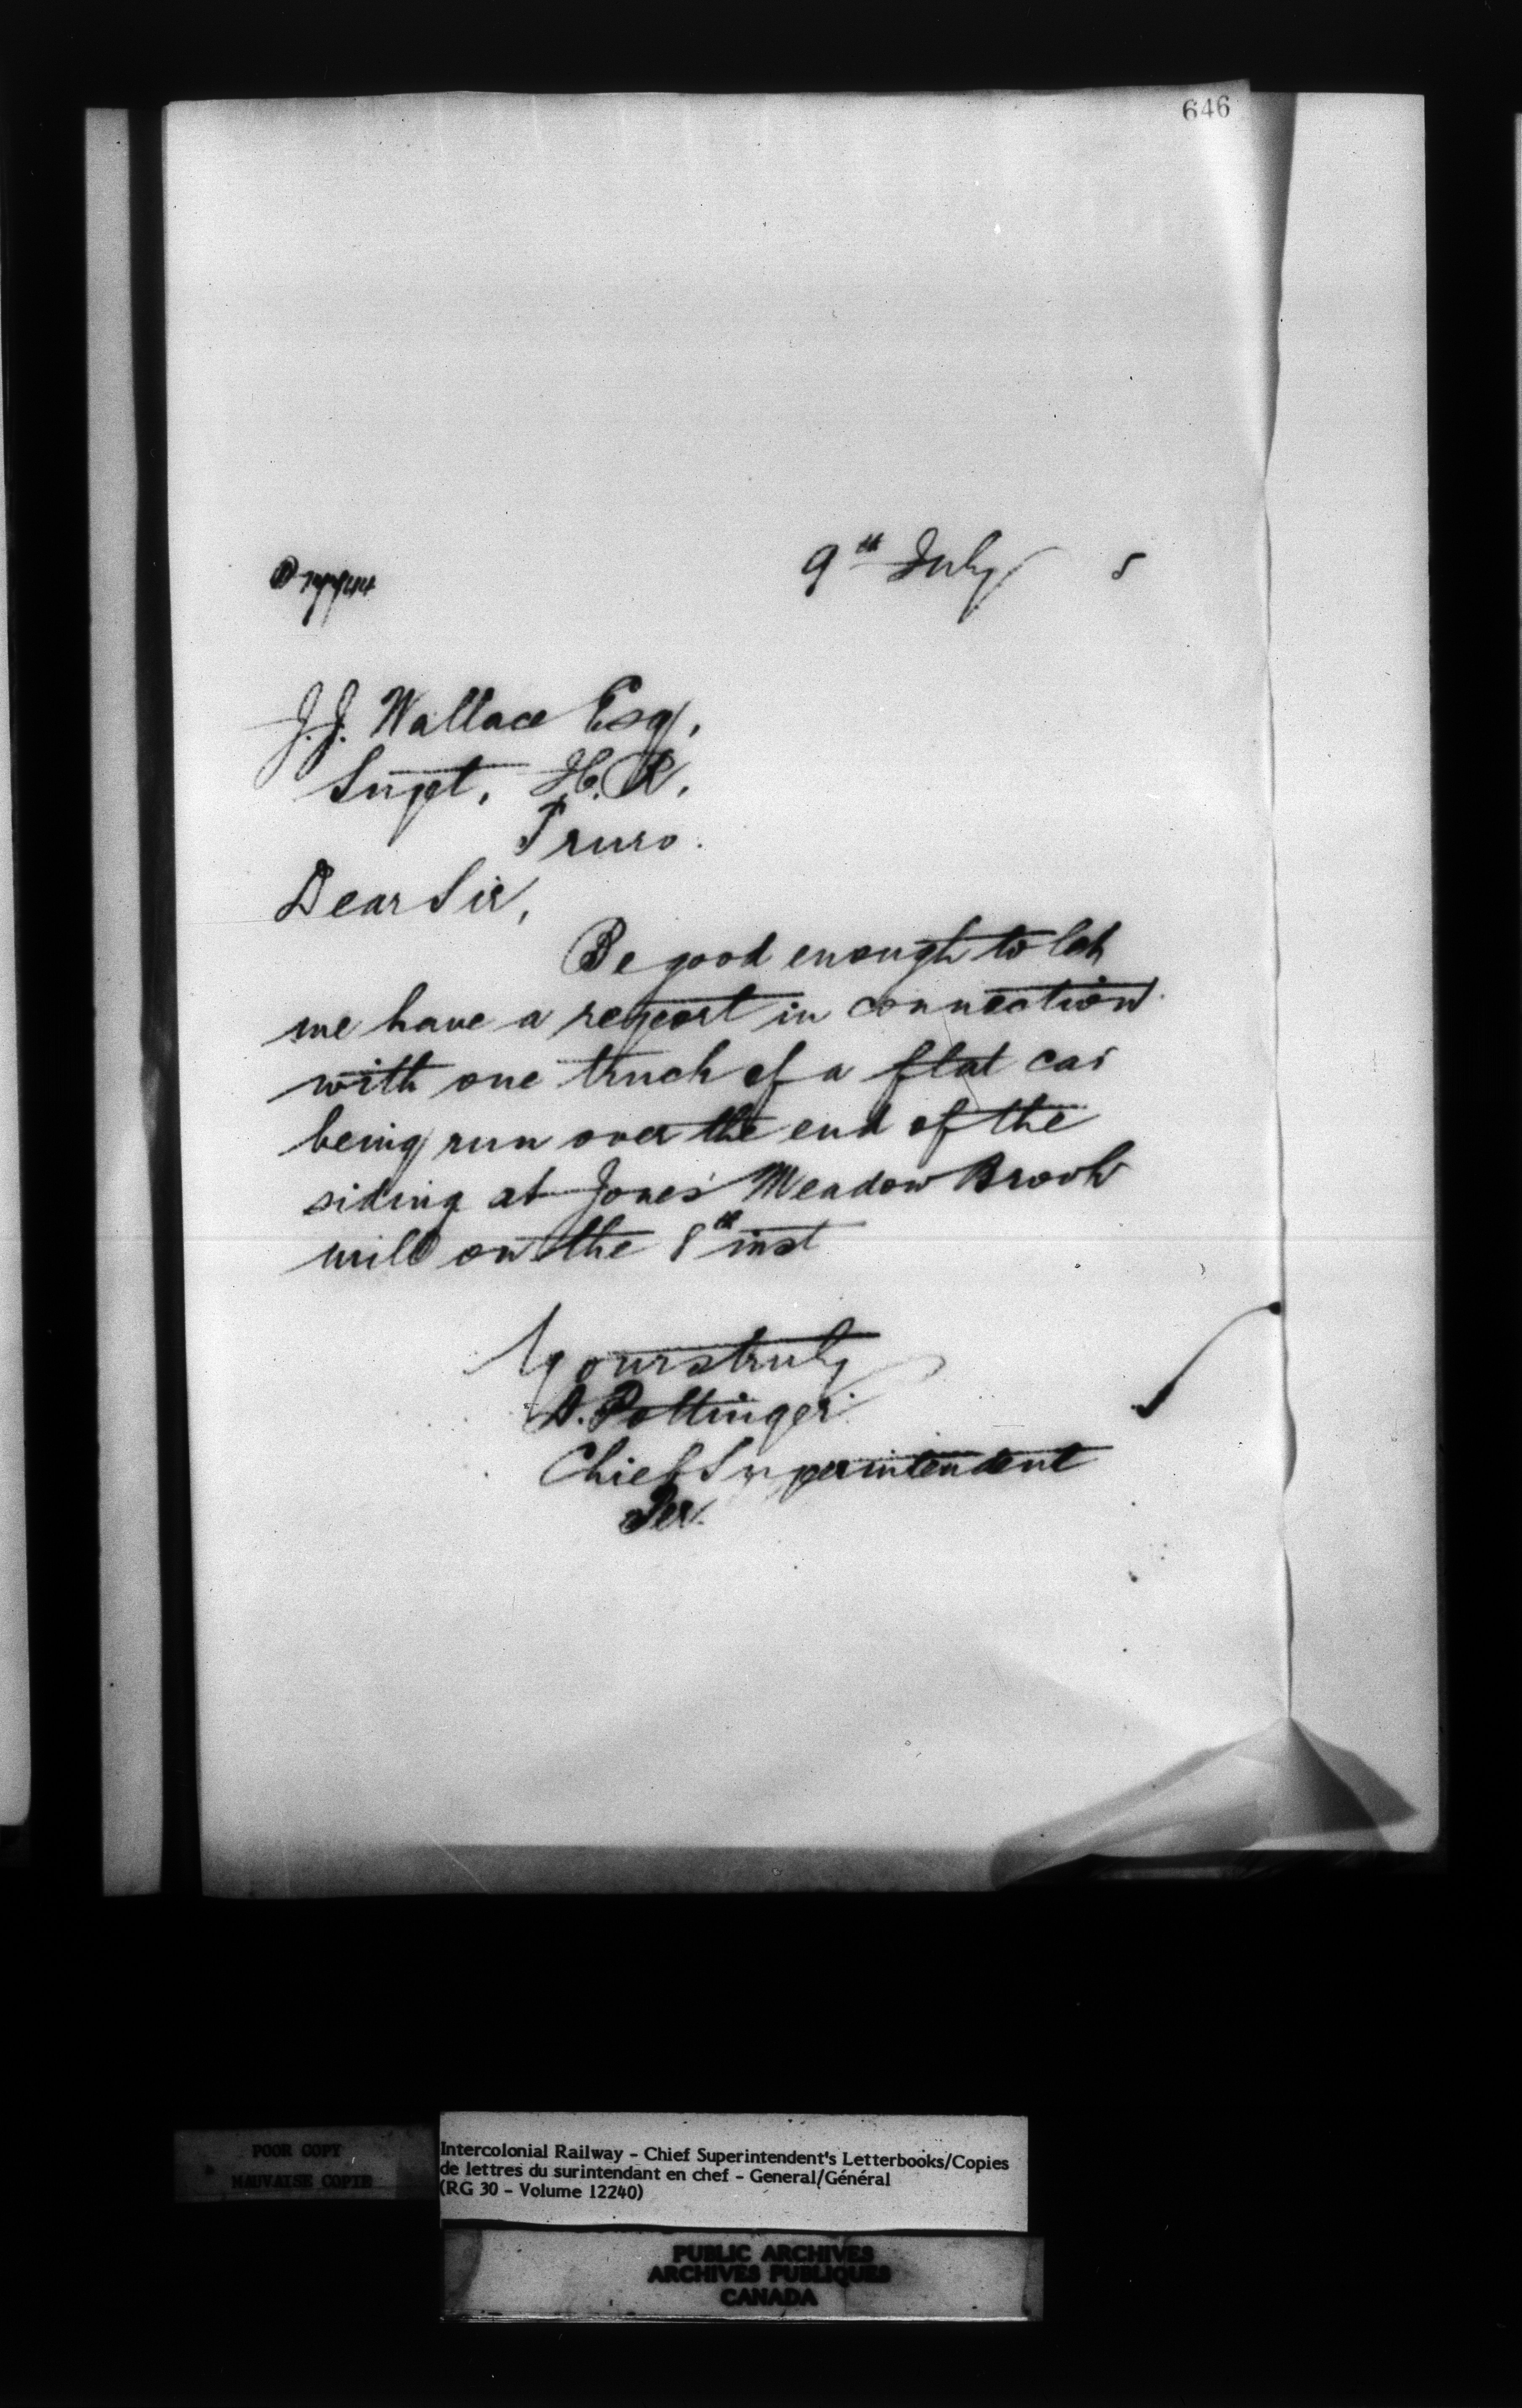 646
9th July 5
J.J. Wallace Esq,
Supt, H.R,
Truro.
Dear Sir,
Be good enough to let
me have a report in connection
with one truck of a flat car
being run over the end of the
siding at Jones' Meadow Brook
mill on the 8th inst
Yours truly
D. Pottinger
Chief Superintendent
Per.
POOR COPY
MAUVAISE COPIE
Intercolonial Railway - Chief Superintendent's Letterbooks/Copies
de lettres du surintendant en chef - General/Général
(RG 30 - Volume 12240)
PUBLIC ARCHIVES
ARCHIVES PUBLIQUES
CANADA